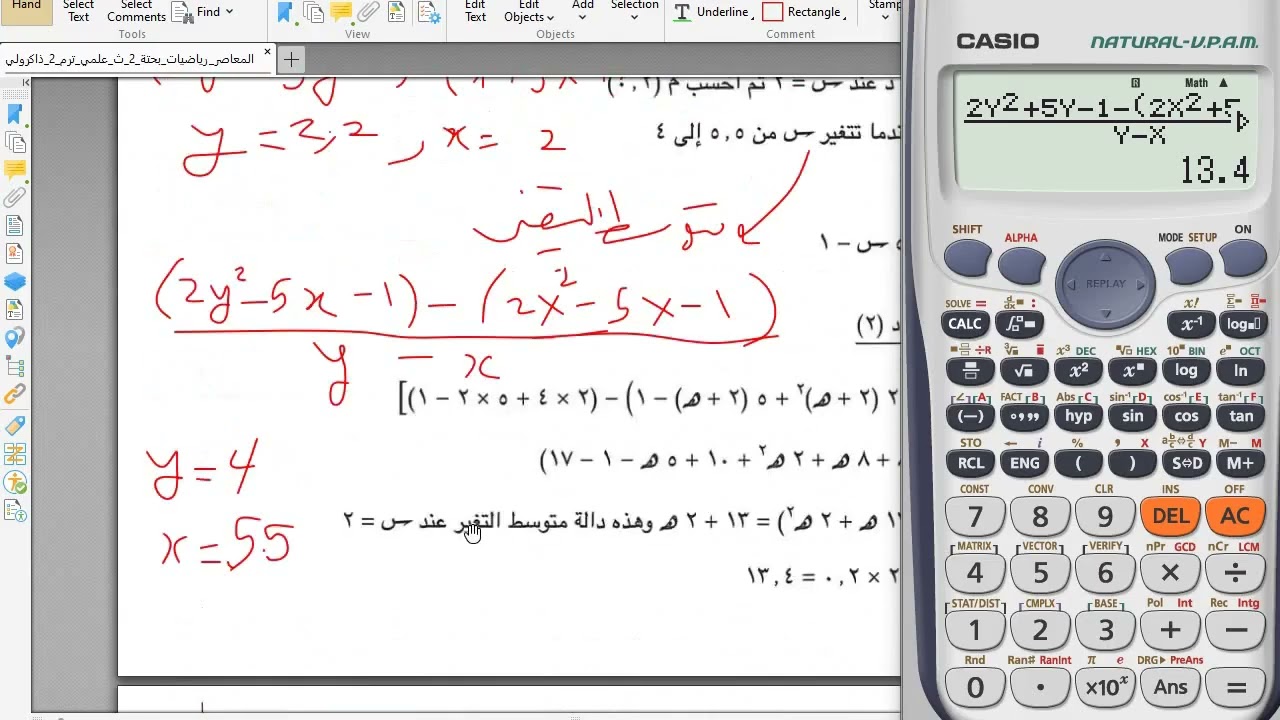 Hand
Select Text
Select Comments
Find
Tools
View
Edit Text
Edit Objects
Add
Selection
Objects
Underline
Rectangle
Stamp
Comment
المعاصر_رياضيات_بحتة_2_ث_علمي_ترم_2_ذاكرولي
د عند س = ٢ ثم احسب م (٠,٢)
y = 2,2 , x = 2
ندما تتغير س من ٥,٥ إلى ٤
متوسط التغير
س − ١
(2y² − 5x − 1) − (2x² − 5x − 1)
y − x
د (٢)
٢ (٢ + هـ)٢ + ٥ (٢ + هـ) − ١) − (٢ × ٤ + ٥ × ٢ − ١)]
+ ٨ هـ + ٢ هـ٢ + ١٠ + ٥ هـ − ١ − ١٧)
y = 4
هـ + ٢ هـ٢) = ١٣ + ٢ هـ وهذه دالة متوسط التغير عند س = ٢
x = 5.5
٢ × ٠,٢ = ١٣,٤
CASIO NATURAL-V.P.A.M.
R Math ▲
2Y²+5Y−1−(2X²+5
Y−X
13.4
SHIFT ALPHA REPLAY MODE SETUP ON
SOLVE = d/dx ∫ : x! Σ Π
CALC ∫ x⁻¹ log
÷R ³√ x³ DEC ˣ√ HEX 10ˣ BIN eˣ OCT
√ x² xⁿ log ln
∠ A FACT B Abs C sin⁻¹ D cos⁻¹ E tan⁻¹ F
(−) °,,, hyp sin cos tan
STO ← i % , X a b/c ⇔ d/c Y M− M
RCL ENG ( ) S⇔D M+
CONST CONV CLR INS OFF
7 8 9 DEL AC
MATRIX VECTOR VERIFY nPr GCD nCr LCM
4 5 6 × ÷
STAT/DIST CMPLX BASE Pol Int Rec Intg
1 2 3 + −
Rnd Ran# RanInt π e DRG▶ PreAns
0 . ×10ˣ Ans =